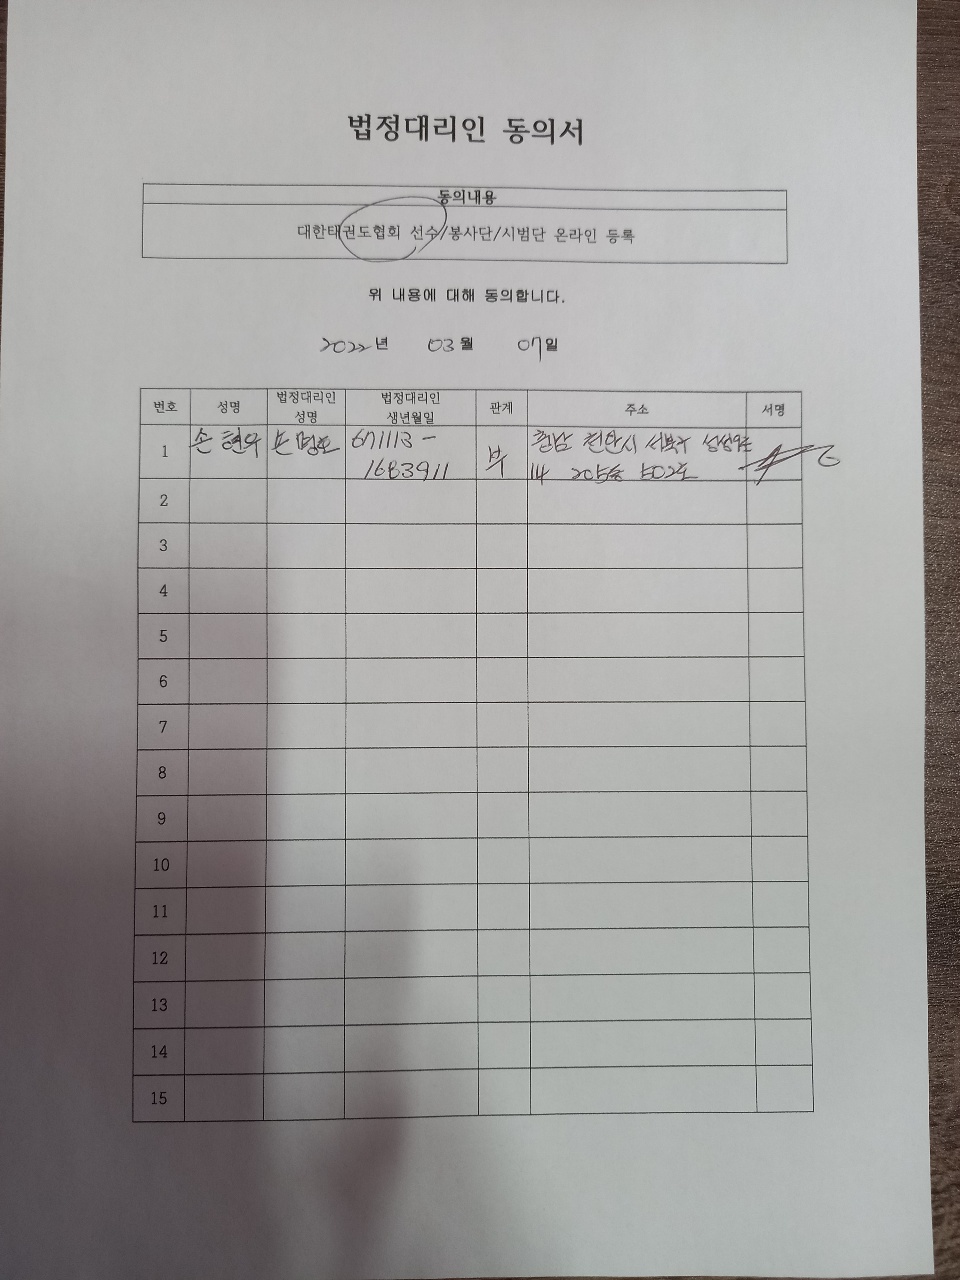 법정대리인 동의서
동의내용
대한태권도협회 선수/봉사단/시범단 온라인 등록
위 내용에 대해 동의합니다.
2022년 03월 07일
번호 성명 법정대리인 성명 법정대리인 생년월일 관계 주소 서명
1 손현우 손명호 671113-1683911 부 충남 천안시 서북구 14 205동 502호
2
3
4
5
6
7
8
9
10
11
12
13
14
15